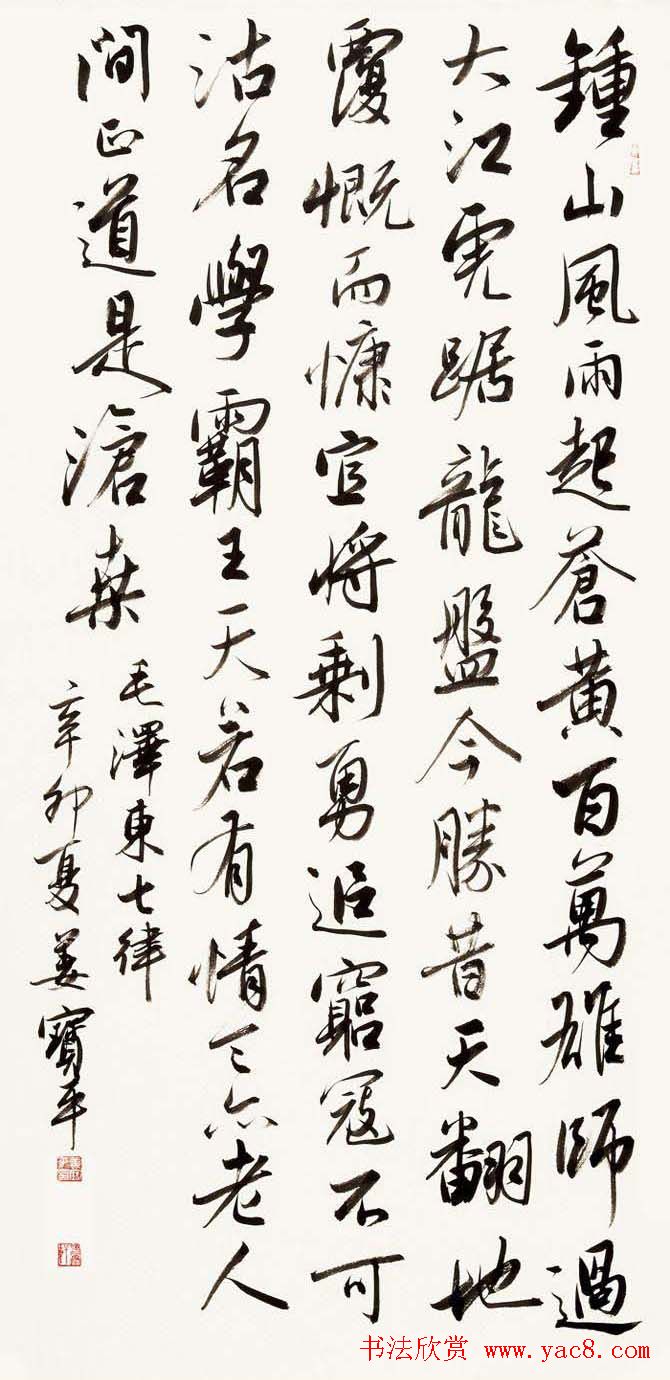 鍾山風雨起蒼黃百萬雄師過
大江虎踞龍盤今勝昔天翻地
覆慨而慷宜將剩勇追窮寇不可
沽名學霸王天若有情天亦老人
間正道是滄桑
毛澤東七律
辛卯夏姜寶平
书法欣赏 www.yac8.com